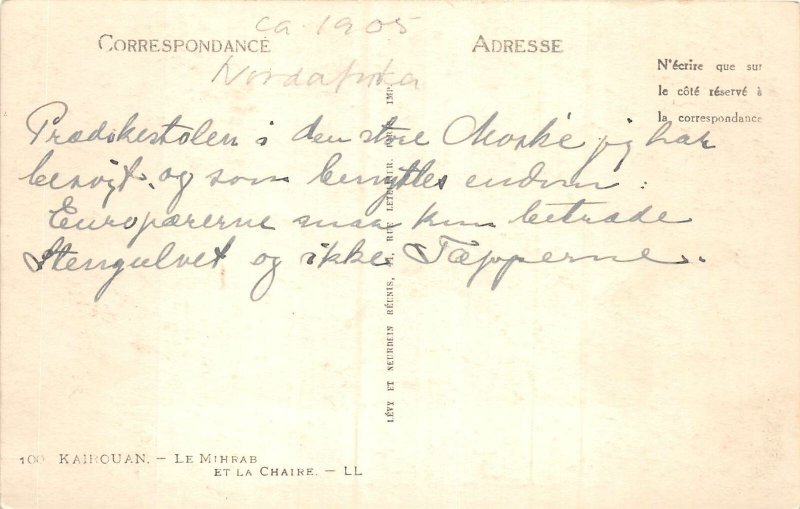 ca 1905
CORRESPONDANCE
ADRESSE
Nordafrika
N'écrire que sur
le côté réservé à
la correspondance
Prædikestolen i den store Moské jeg har
besøgt, og som benyttes endnu.
Europærerne maa kun betræde
Stengulvet og ikke Tæpperne.
LÉVY ET NEURDEIN RÉUNIS, 44, RUE LETELLIER, PARIS IMP.
100 KAIROUAN. – LE MIHRAB
ET LA CHAIRE. – LL